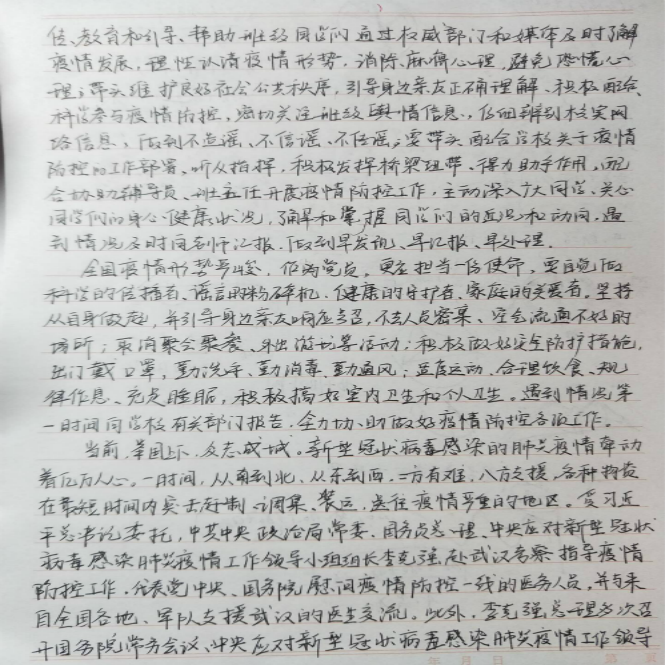 传、教育和引导、帮助班级同学们通过权威部门和媒体及时了解
疫情发展，理性认清疫情形势，消除麻痹心理，避免恐慌心
理；带头维护良好社会公共秩序，引导身边亲友正确理解、积极配合、
科学参与疫情防控，密切关注班级舆情信息，仔细辨别核实网
络信息，做到不造谣、不信谣、不传谣；要带头配合学校关于疫情
防控的工作部署、听从指挥，积极发挥桥梁纽带、得力助手作用，配
合协助辅导员、班主任开展疫情防控工作，主动深入广大同学、关心
同学们的身心健康状况，了解和掌握同学们的近况和动向，遇
到情况及时向老师汇报，做到早发现、早汇报、早处理．
全国疫情形势严峻，作为党员，更应担当一份使命，要自觉做
科学的传播者、谣言的粉碎机、健康的守护者、家庭的关爱者。坚持
从自身做起，并引导身边亲友响应号召，不去人员密集、空气流通不好的
场所；取消聚会聚餐、外出游玩等活动；积极做好安全防护措施，
出门戴口罩，勤洗手、勤消毒、勤通风；适度运动、合理饮食、规
律作息、充足睡眠，积极搞好室内卫生和个人卫生。遇到情况第
一时间向学校有关部门报告，全力协助做好疫情防控各项工作。
当前，举国上下，众志成城。新型冠状病毒感染的肺炎疫情牵动
着亿万人心。一时间，从南到北、从东到西，一方有难，八方支援，各种物资
在最短时间内实赶制、调集、装运，送往疫情严重的地区。受习近
平总书记委托，中共中央政治局常委、国务院总理、中央应对新型冠状
病毒感染肺炎疫情工作领导小组组长李克强赴武汉考察指导疫情
防控工作，代表党中央、国务院慰问疫情防控一线的医务人员，并与来
自全国各地、军队支援武汉的医生交流。此外，李克强总理多次召
开国务院常务会议、中央应对新型冠状病毒感染肺炎疫情工作领导
年 月 日 第 页